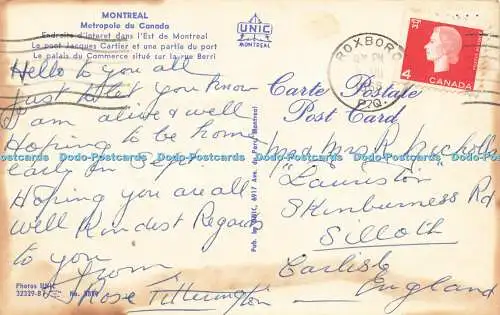 MONTREAL
Metropole du Canada
Endroits d'interet dans l'Est de Montreal
Le pont Jacques Cartier et une partie du port
Le palais du Commerce situé sur la rue Berri
UNIC
MONTREAL
ROXBORO
PM
P.Q.
4
CANADA
Carte Postale
Post Card
Hello to you all
Just to let you know
I am alive & well
Hoping to be home
early in Sept.
Hoping you are all
well Kindest Regards
to you
from
Rose Titterington
Pub. by UNIC, 6917 Ave. du Parc, Montreal
Mr and Mrs R Nicholls
"Lauriston"
Skinburness Rd
Silloth
Carlisle
England
Photos UNIC
32329-B
No.
Dodo-Postcards Dodo-Postcards Dodo-Postcards Dodo-Postcards Dodo-Postcards Dodo-Postcards